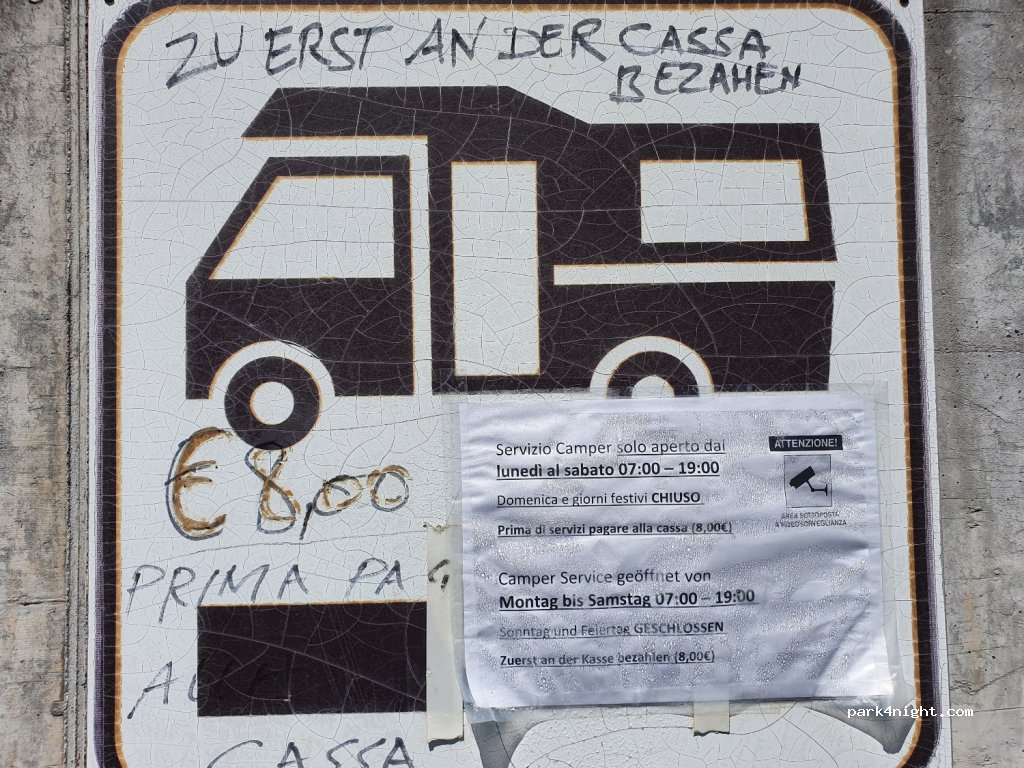 ZU ERST AN DER CASSA
BEZAHEN
€ 8,00
PRIMA PAG
CASSA
Servizio Camper solo aperto dal
lunedì al sabato 07:00 – 19:00
Domenica e giorni festivi CHIUSO
Prima di servizi pagare alla cassa (8,00€)
ATTENZIONE!
AREA SOTTOPOSTA
A VIDEOSORVEGLIANZA
Camper Service geöffnet von
Montag bis Samstag 07:00 – 19:00
Sonntag und Feiertag GESCHLOSSEN
Zuerst an der Kasse bezahlen (8,00€)
park4night.com